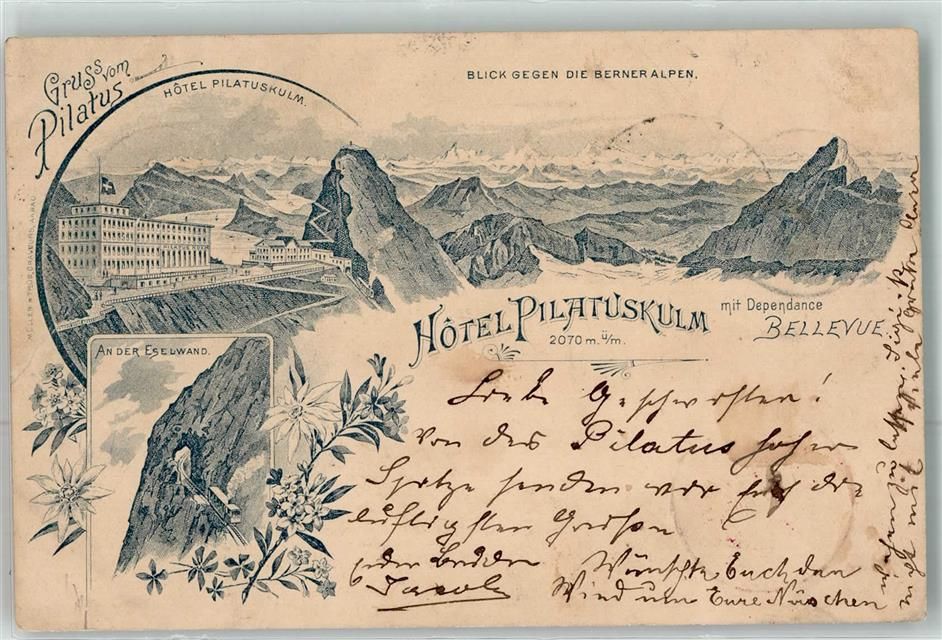 Gruss vom
Pilatus.
HÔTEL PILATUSKULM.
BLICK GEGEN DIE BERNERALPEN.
HÔTEL PILATUSKULM
2070 m. ü/m.
mit Dependance
BELLEVUE.
AN DER ESELWAND.
Liebe Geschwister!
Von des Pilatus hoher
Spitze senden wir Euch die
luftigsten Grüße
Jacob
Wünschte Euch den
Wind um Eure Näschen
wehen zu lassen.
nicht mit